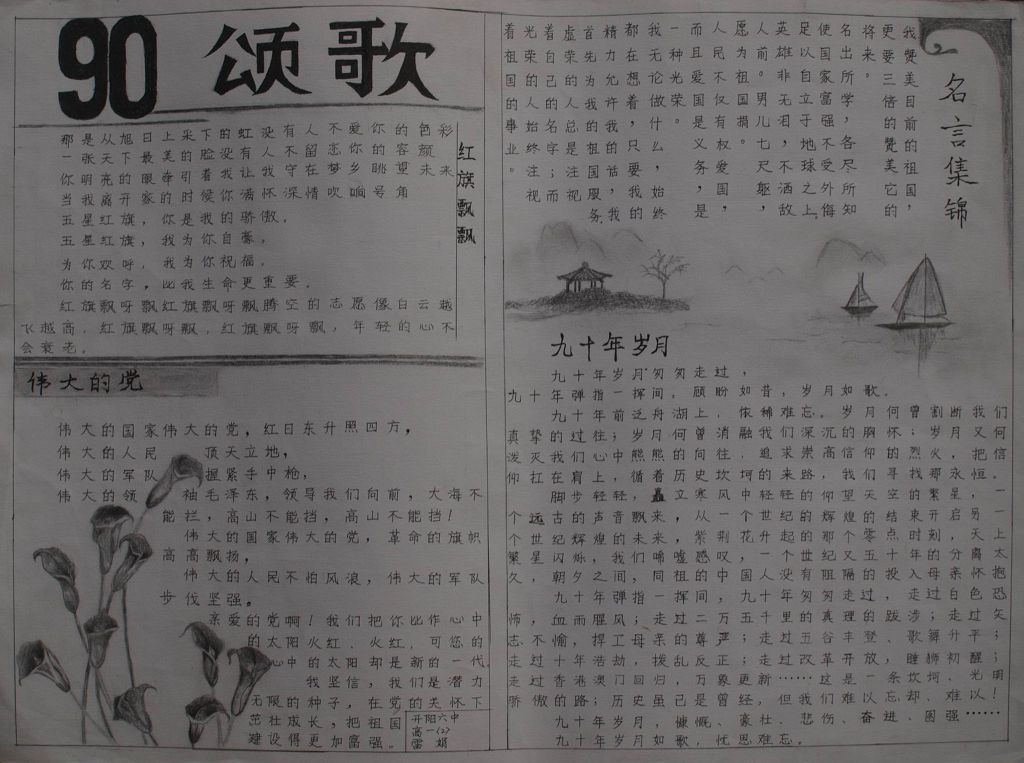 90 颂歌
红旗飘飘
那是从旭日上采下的虹没有人不爱你的色彩
一张天下最美的脸没有人不留恋你的容颜
你明亮的眼牵引着我让我守在梦乡眺望未来
当我离开家的时候你满怀深情吹响号角
五星红旗，你是我的骄傲，
五星红旗，我为你自豪，
为你欢呼，我为你祝福，
你的名字，比我生命更重要。
红旗飘呀飘红旗飘呀飘腾空的志愿像白云越
飞越高，红旗飘呀飘，红旗飘呀飘，年轻的心不
会衰老。
伟大的党
伟大的国家伟大的党，红日东升照四方，
伟大的人民 顶天立地，
伟大的军队 握紧手中枪，
伟大的领 袖毛泽东，领导我们向前，大海不
能拦，高山不能挡，高山不能挡！
伟大的国家伟大的党，革命的旗帜
高高飘扬，
伟大的人民不怕风浪，伟大的军队
步伐坚强。
亲爱的党啊！我们把你比作心中
的太阳火红、火红，可您的
心中的太阳却是新的一代
我坚信，我们是潜力
无限的种子，在党的关怀下
茁壮成长，把祖国
建设得更加富强。
开阳六中
高一(2)
雷娟
名言集锦
我赞美目前的祖国，
更要三倍的赞美它的
将来。
名出所学，各尽所知
使国家富强不受外侮
足以自立于地球之上。
英雄非无泪，不洒敌
人前。男儿七尺躯，
愿为祖国捐。
人民不仅有权爱国，
而且爱国是义务，是
一种光荣。
我无论做什么，始终
都在想着，只要我的
精力允许我的话，我
首先为我的祖国服务
虚荣的人总是注视
着自己的名字；而
光荣的人始终注视
着祖国的事业。
九十年岁月
九十年岁月匆匆走过，
九十年弹指一挥间，顾盼如昔，岁月如歌。
九十年前泛舟湖上，依稀难忘。岁月何曾割断我们
真挚的过往；岁月何曾消融我们深沉的胸怀；岁月又何
泼灭我们心中熊熊的向往，追求崇高信仰的烈火，把信
仰扛在肩上，循着历史坎坷的来路，我们寻找那永恒。
脚步轻轻，矗立寒风中轻轻的仰望天空的繁星，一
个远古的声音飘来，从一个世纪的辉煌的结束开启另一
个世纪辉煌的未来，紫荆花升起的那个零点时刻，天上
繁星闪烁，我们唏嘘感叹，一个世纪又五十年的分离太
久，朝夕之间，同祖的中国人没有阻隔的投入母亲怀抱
九十年弹指一挥间，九十年匆匆走过，走过白色恐
怖，血雨腥风；走过二万五千里的真理的跋涉；走过矢
志不愉，捍工母亲的尊严；走过五谷丰登、歌舞升平；
走过十年浩劫，拨乱反正；走过改革开放，睡狮初醒；
走过香港澳门回归，万象更新……这是一条坎坷、光明
骄傲的路；历史虽已是曾经，但我们难以忘却、难以！
九十年岁月，慷慨、豪壮、悲伤、奋进、图强……
九十年岁月如歌，忧思难忘。